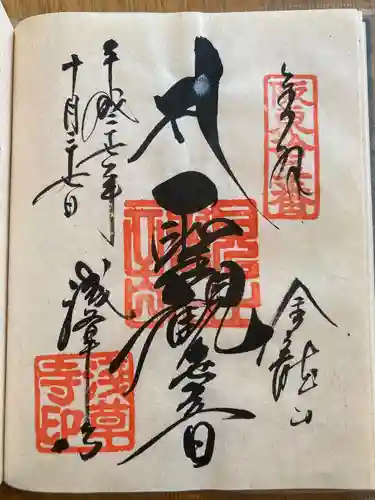 奉拝
坂東第十三番
金龍山
聖観世音
平成二十年
十月二十七日
浅草寺
浅草
寺印